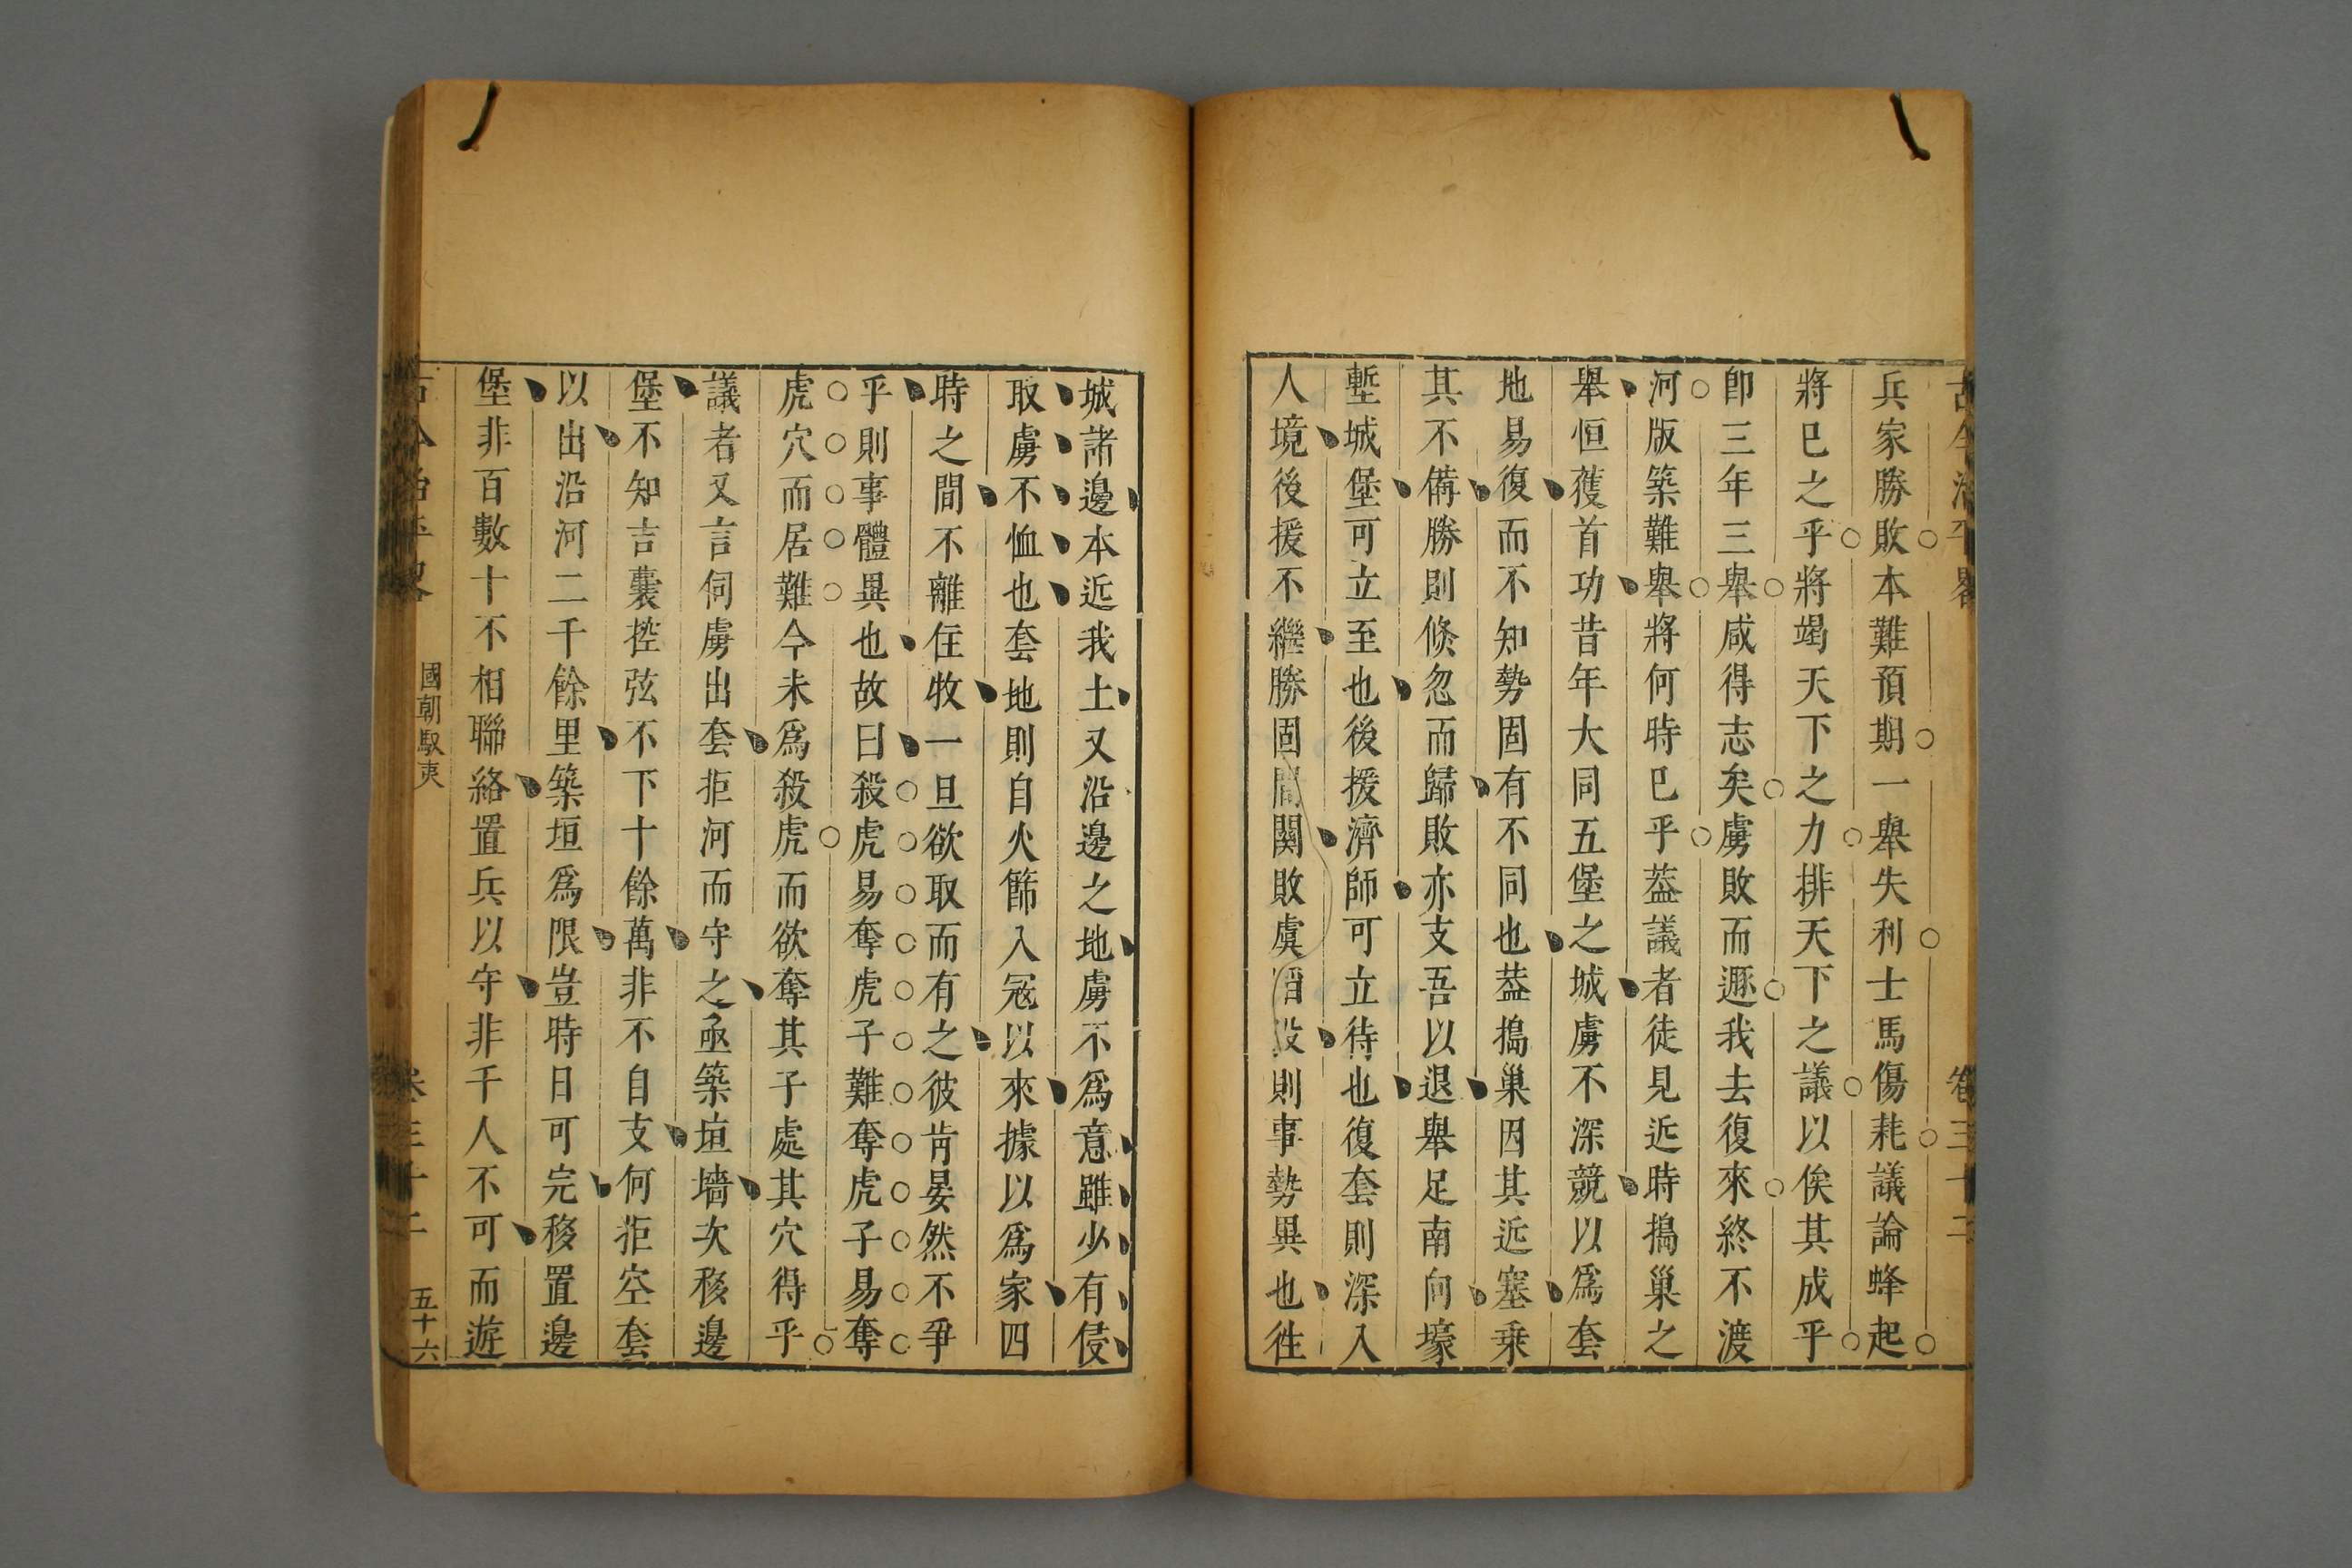 兵家勝敗本難預期一舉失利士馬傷耗議論蜂起
將已之乎將竭天下之力排天下之議以俟其成乎
卽三年三舉咸得志矣虜敗而遯我去復來終不渡
河版築難舉將何時已乎葢議者徒見近時搗巢之
舉恒獲首功昔年大同五堡之城虜不深競以爲套
地易復而不知勢固有不同也葢搗巢因其近塞乗
其不備勝則倐忽而歸敗亦支吾以退舉足南向壕
塹城堡可立至也後援濟師可立待也復套則深入
人境後援不繼勝固間關敗虞陷沒則事勢異也徃
城諸邊本近我土又沿邊之地虜不爲意雖少有侵
取虜不恤也套地則自火篩入冦以來據以爲家四
時之間不離住牧一旦欲取而有之彼肯晏然不爭
乎則事體異也故曰殺虎易奪虎子難奪虎子易奪
虎穴而居難今未爲殺虎而欲奪其子處其穴得乎
議者又言伺虜出套拒河而守之亟築垣墻次移邊
堡不知吉囊控弦不下十餘萬非不自支何拒空套
以出沿河二千餘里築垣爲限豈時日可完移置邊
堡非百數十不相聯絡置兵以守非千人不可而遊
國朝馭夷
五十六